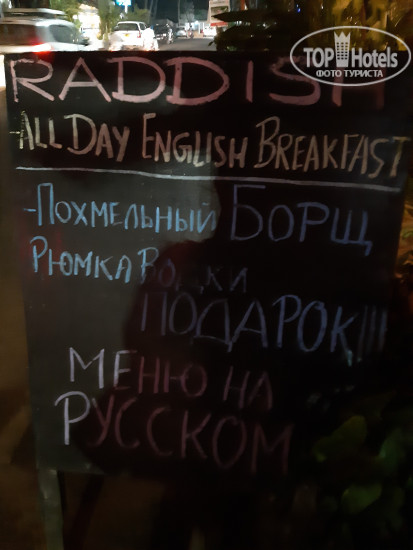 TOPHotels
ФОТО ТУРИСТА
RADDISH
-ALL DAY ENGLISH BREAKFAST
-ПОХМЕЛЬНЫЙ БОРЩ
РЮМКА ВОДКИ
ПОДАРОК!!!
МЕНЮ НА
РУССКОМ